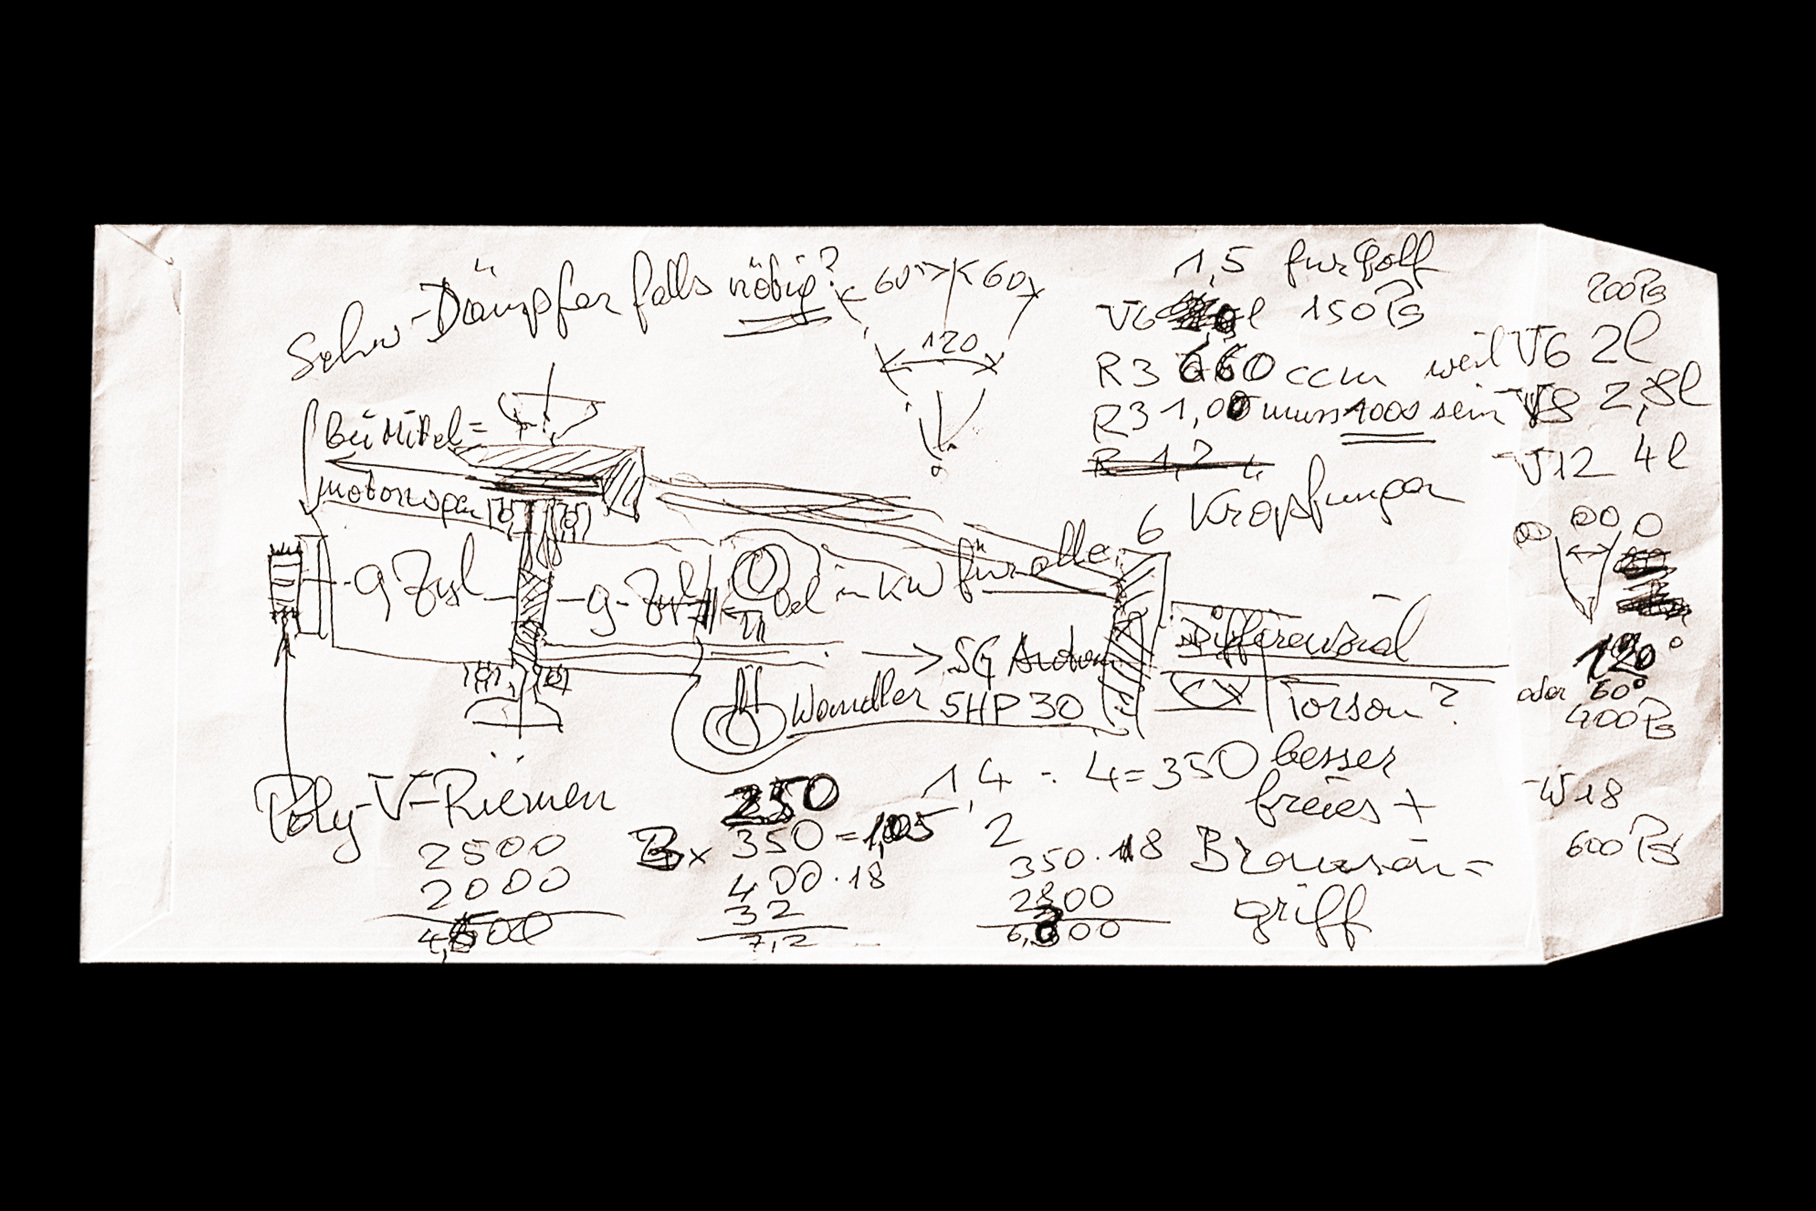 Schw-Dämpfer falls nötig?
60° 60
120
1,5 für Golf
V6 l 150 PS
R3 660 ccm weil V6 2l
R3 1,00 muss 1000 sein V8 2,8l
R 1,2 L
V12 4l
200 PS
6 Kröpfungen
Bei Mittel=
motorwagen
9 Zyl
9-Zyl
in KW für alle
00 00 0
120°
oder 60°
400 PS
W18
600 PS
5G Autom
Wandler 5HP30
Differenzial
Torson?
besser
freies +
Browson=
griff
Poly-V-Riemen
2500
2000
4,500
250
3x 350 = 1,05
400 · 18
32
7,2
1,4 : 4 = 350
2
350 · 18
2800
6,300